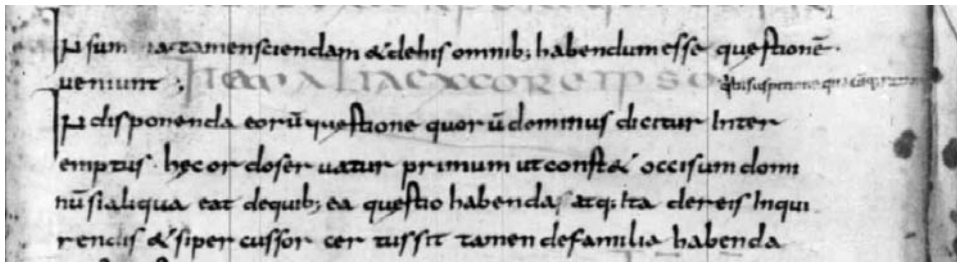 Psum ta tamen sciendam & dehis omnib; habendum esse questionē.
ueniunt ; Item alia ex cor e ipso
P disponenda eorū questione quorū dominus dicitur Inter
emptus. hęc ordo seruatur primum ut const& occisum domi
nū sialiqua eat dequib; ea questio habenda, atq; Ita dereis Inqui
rendis & siper cussor certus sit tamen defamilia habenda